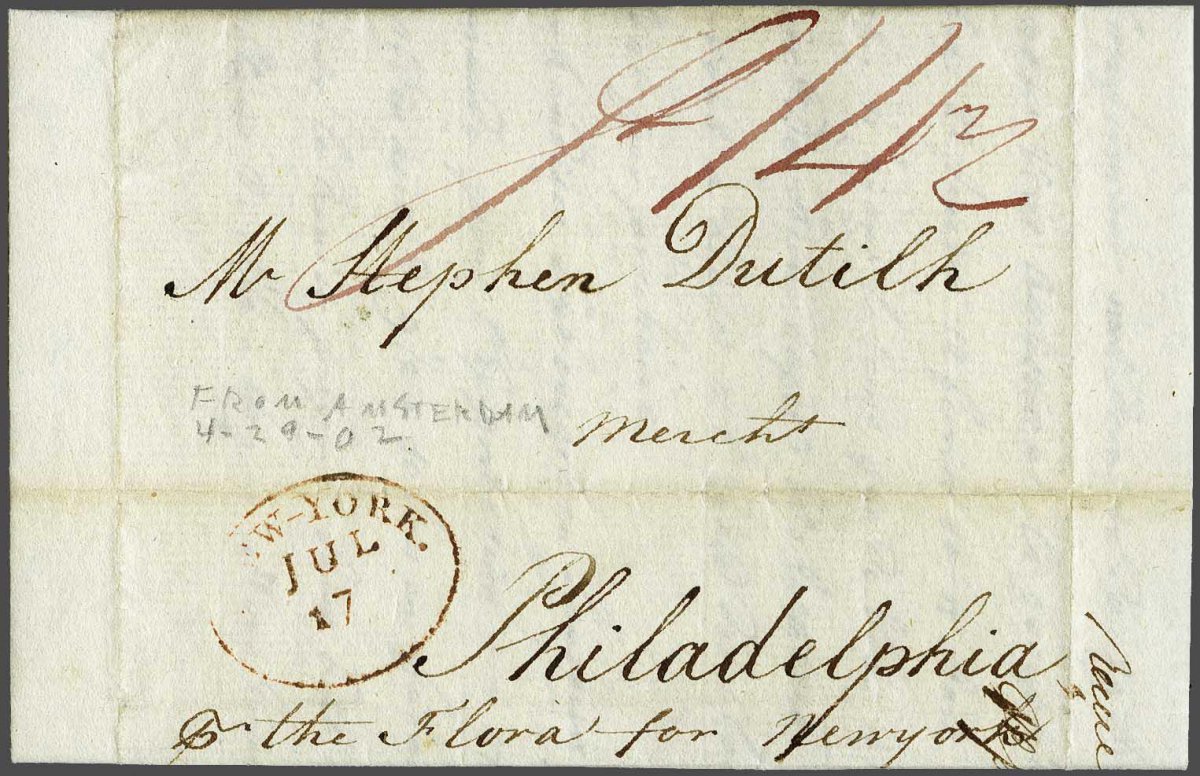 14½
Mr Stephen Dutilh
FROM AMSTERDAM
4-29-02
Mercht
EW-YORK.
JUL
17
Philadelphia
pr the Flora for Newyork